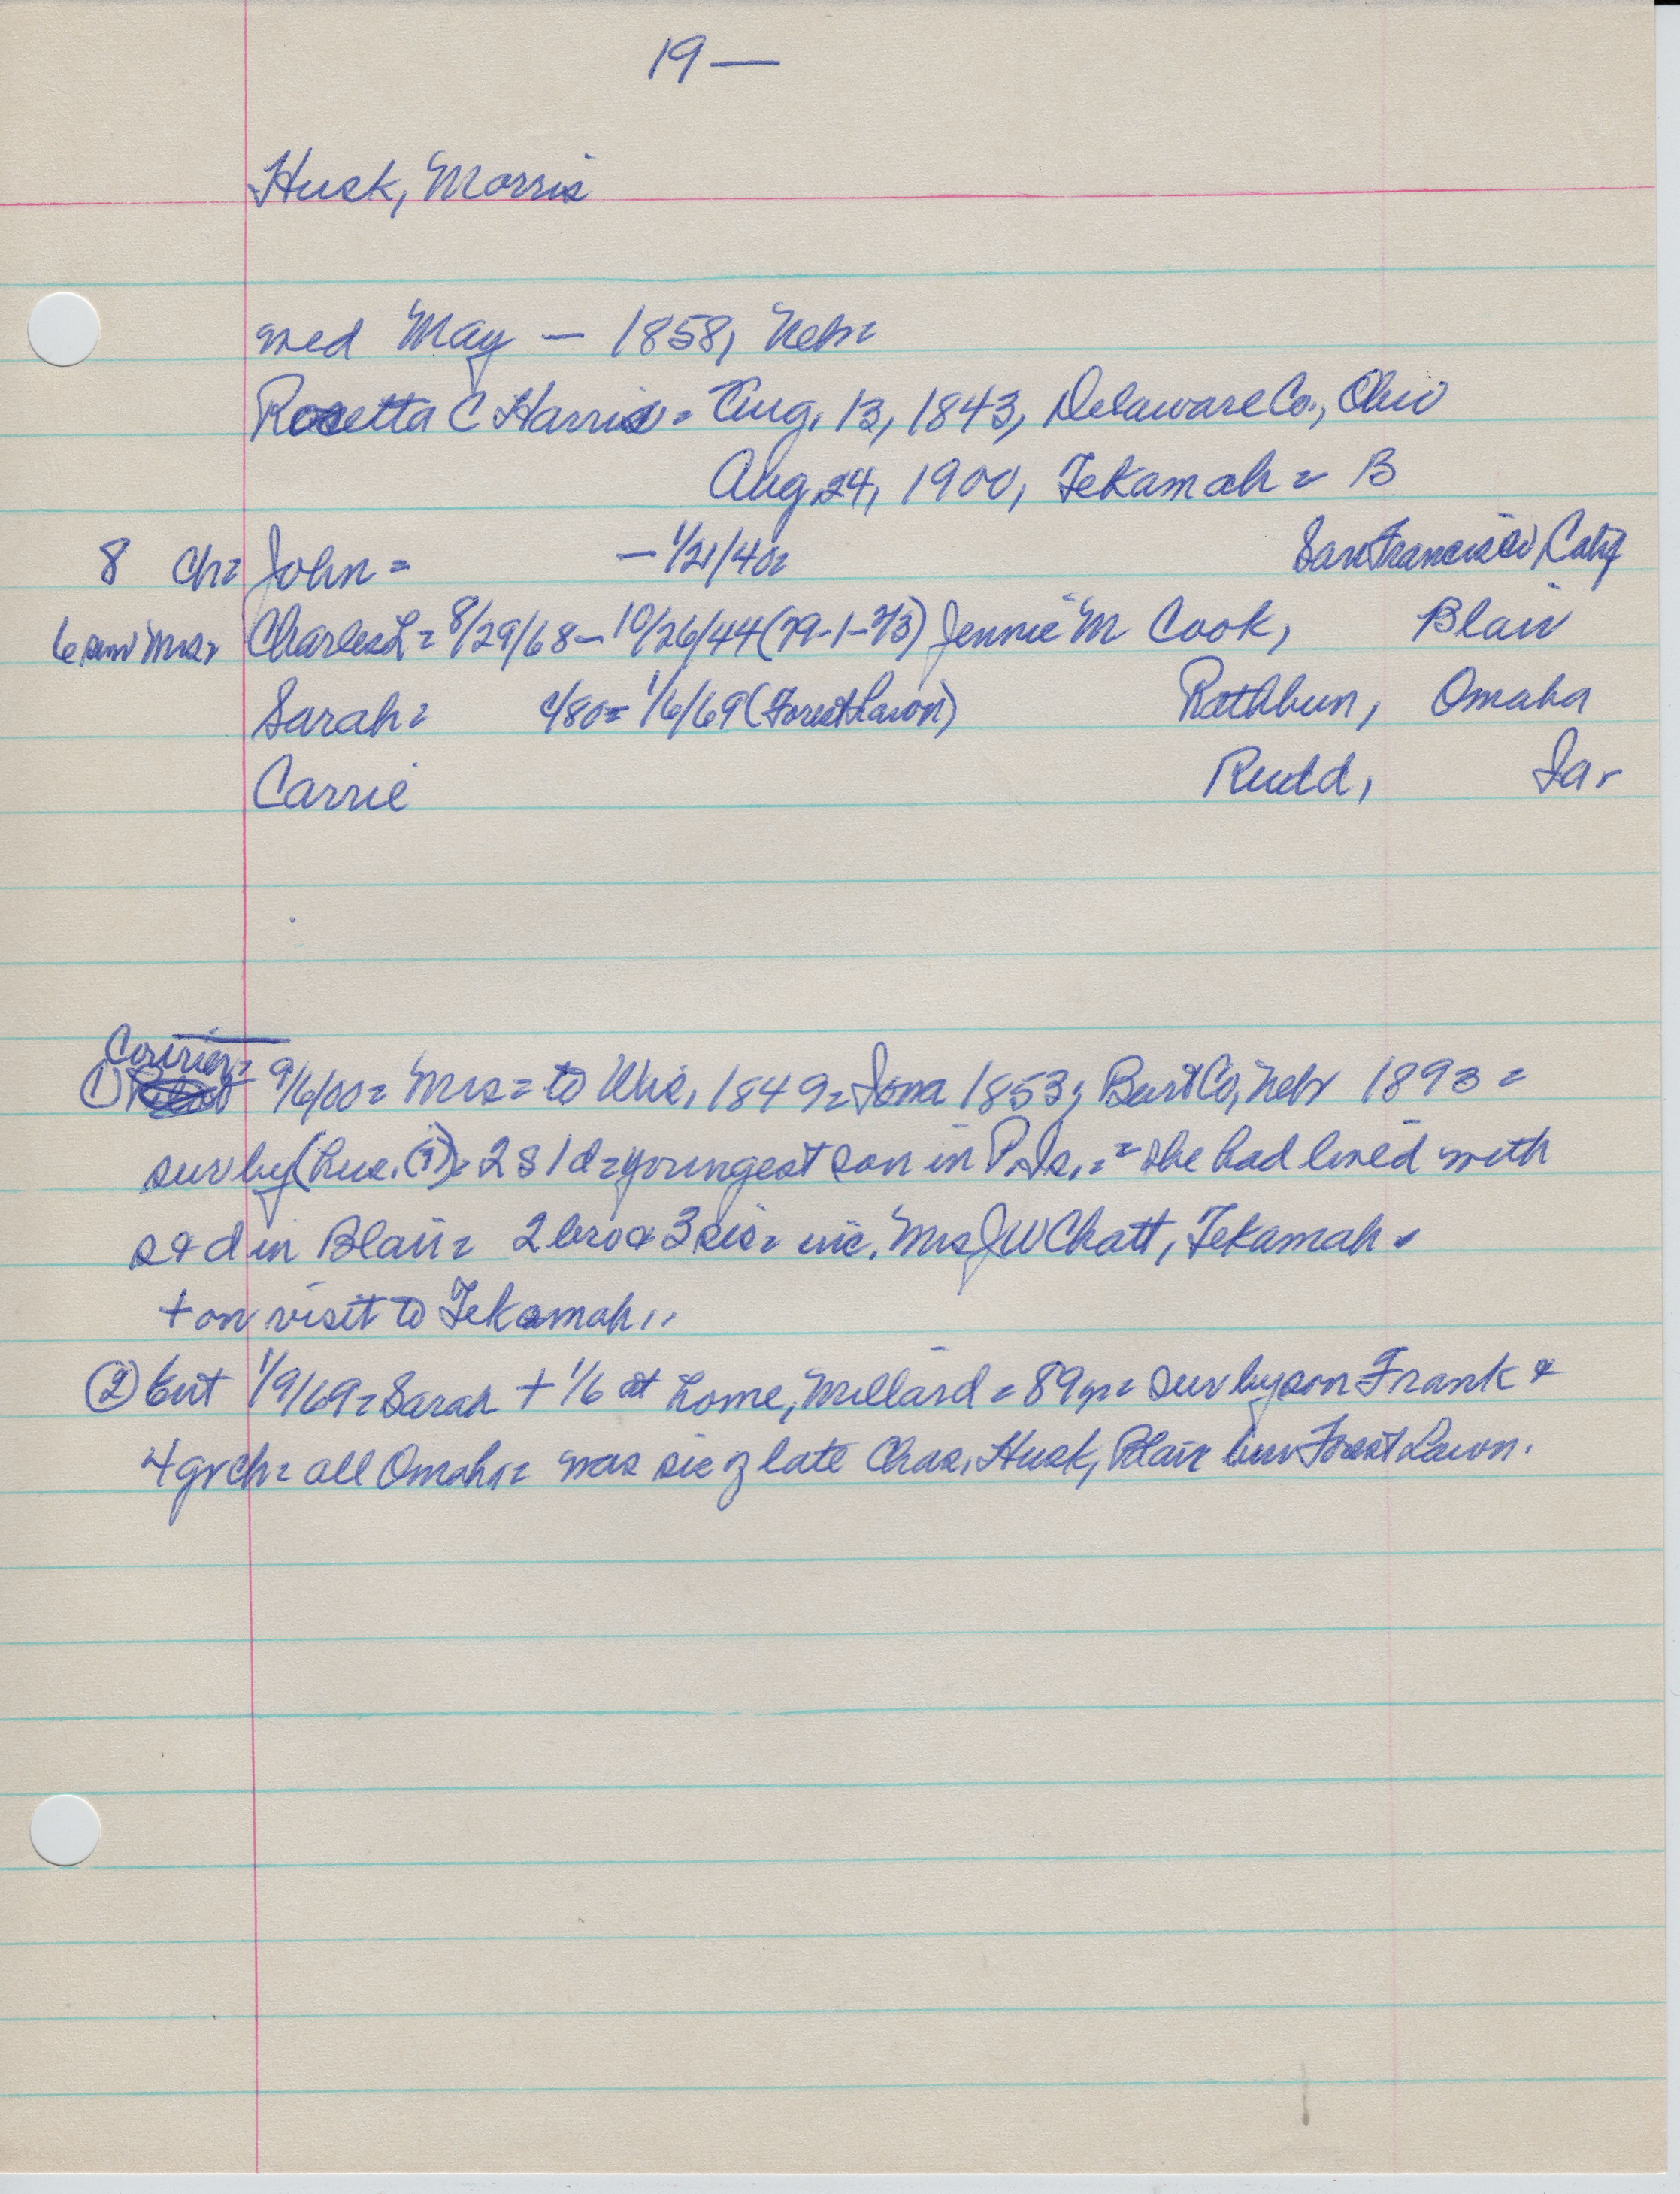 19 —
Husk, Morris
med May — 1858, Nebr
Rosetta C Harris = Aug. 13, 1843, Delaware Co., Ohio
Aug 24, 1900, Tekamah = B
8 Ch = John = — 1/21/40 = San Francisco, Calif
6 surv Mrs, Charles L = 8/29/68 — 10/26/44 (79-1-23) Jennie M Cook, Blair
Sarah = c/80 = 1/6/69 (Forest Lawn) Rathbun, Omaha
Carrie Rudd, Ia.
Courier =
① 9/6/00 = Mrs = to Wis, 1849 = Iowa 1853; Burt Co, Nebr 1893 =
surv by (hus. (?)) = 2 s 1 d = youngest son in P. Is. = = she had lived with
s & d in Blair = 2 bro & 3 sis = inc. Mrs J W Chatt, Tekamah =
+ on visit to Tekamah ..
② Ent 1/9/69 = Sarah + 1/6 at home, Millard = 89 yr = surv by son Frank &
4 gr ch = all Omaha = was sis of late Chas. Husk, Blair bur Forest Lawn.